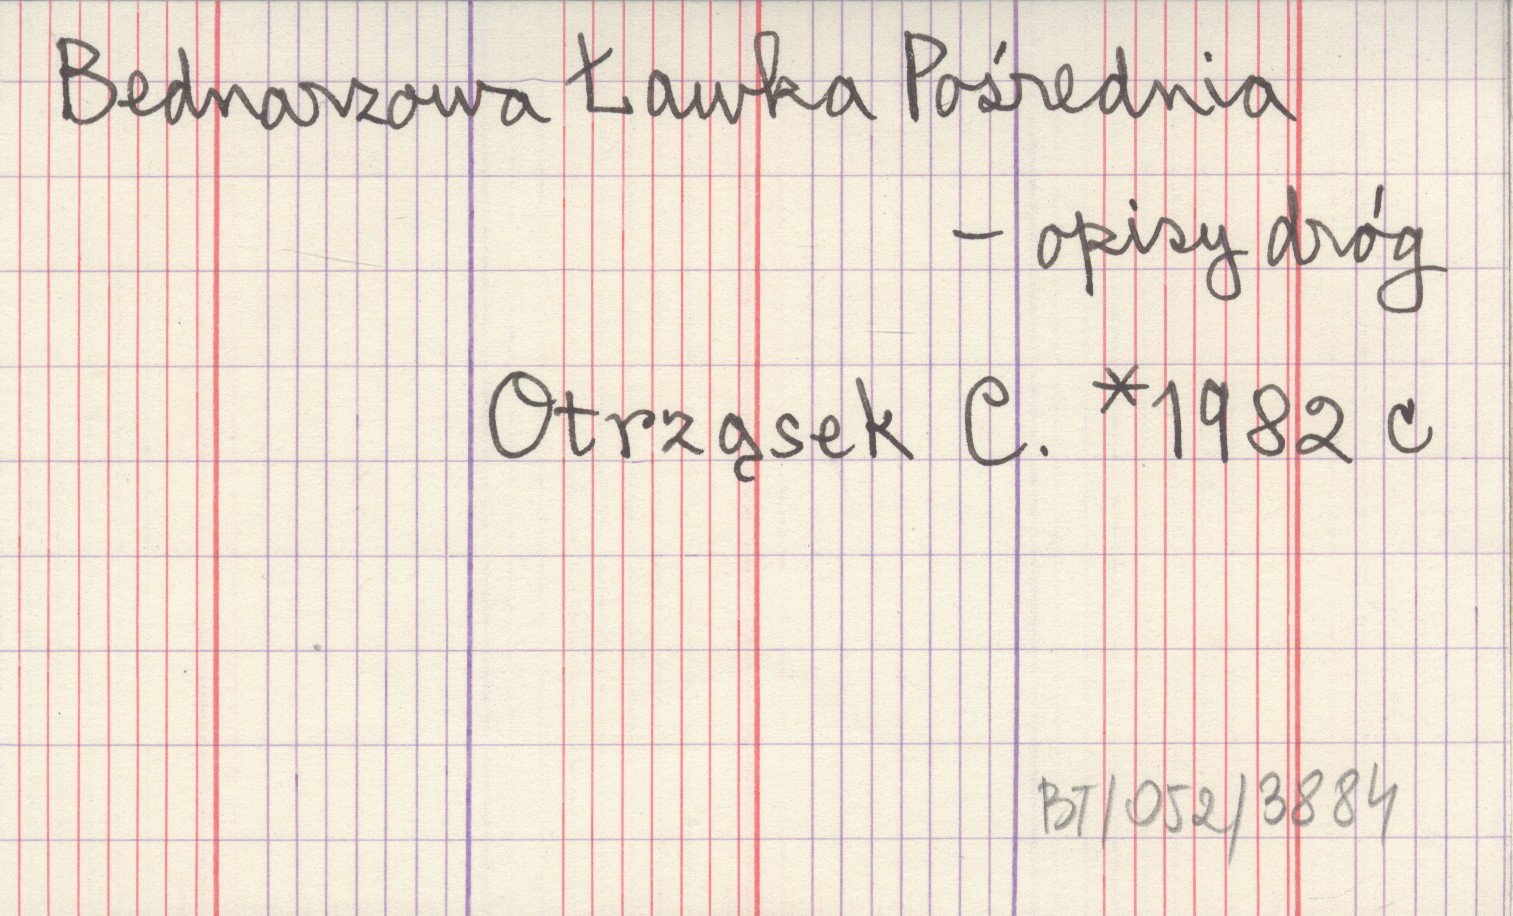 Bednarzowa Ławka Pośrednia
- opisy dróg
Otrząsek C. *1982 c
BT/052/3884